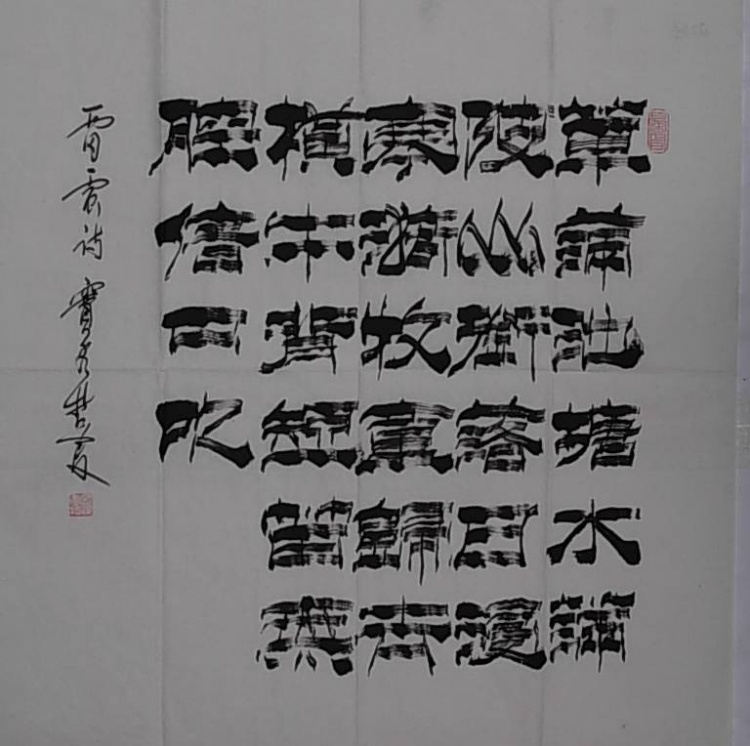 草滿池塘水滿
陂山銜落日浸
寒漪牧童歸去
橫牛背短笛無
腔信口吹
雷震诗